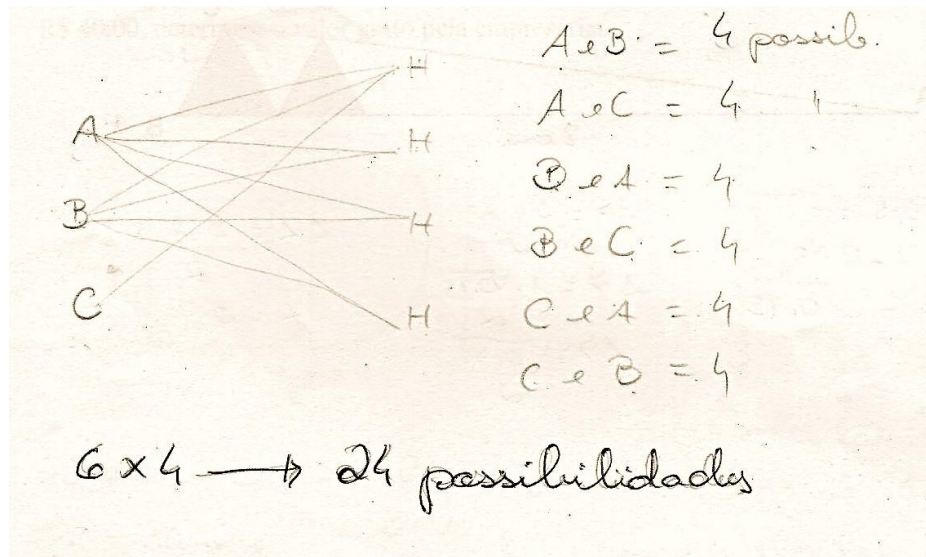 A
B
C
H
H
H
H
A e B = 4 possib.
A e C = 4 "
B e A = 4
B e C = 4
C e A = 4
C e B = 4
6 x 4 → 24 possibilidades